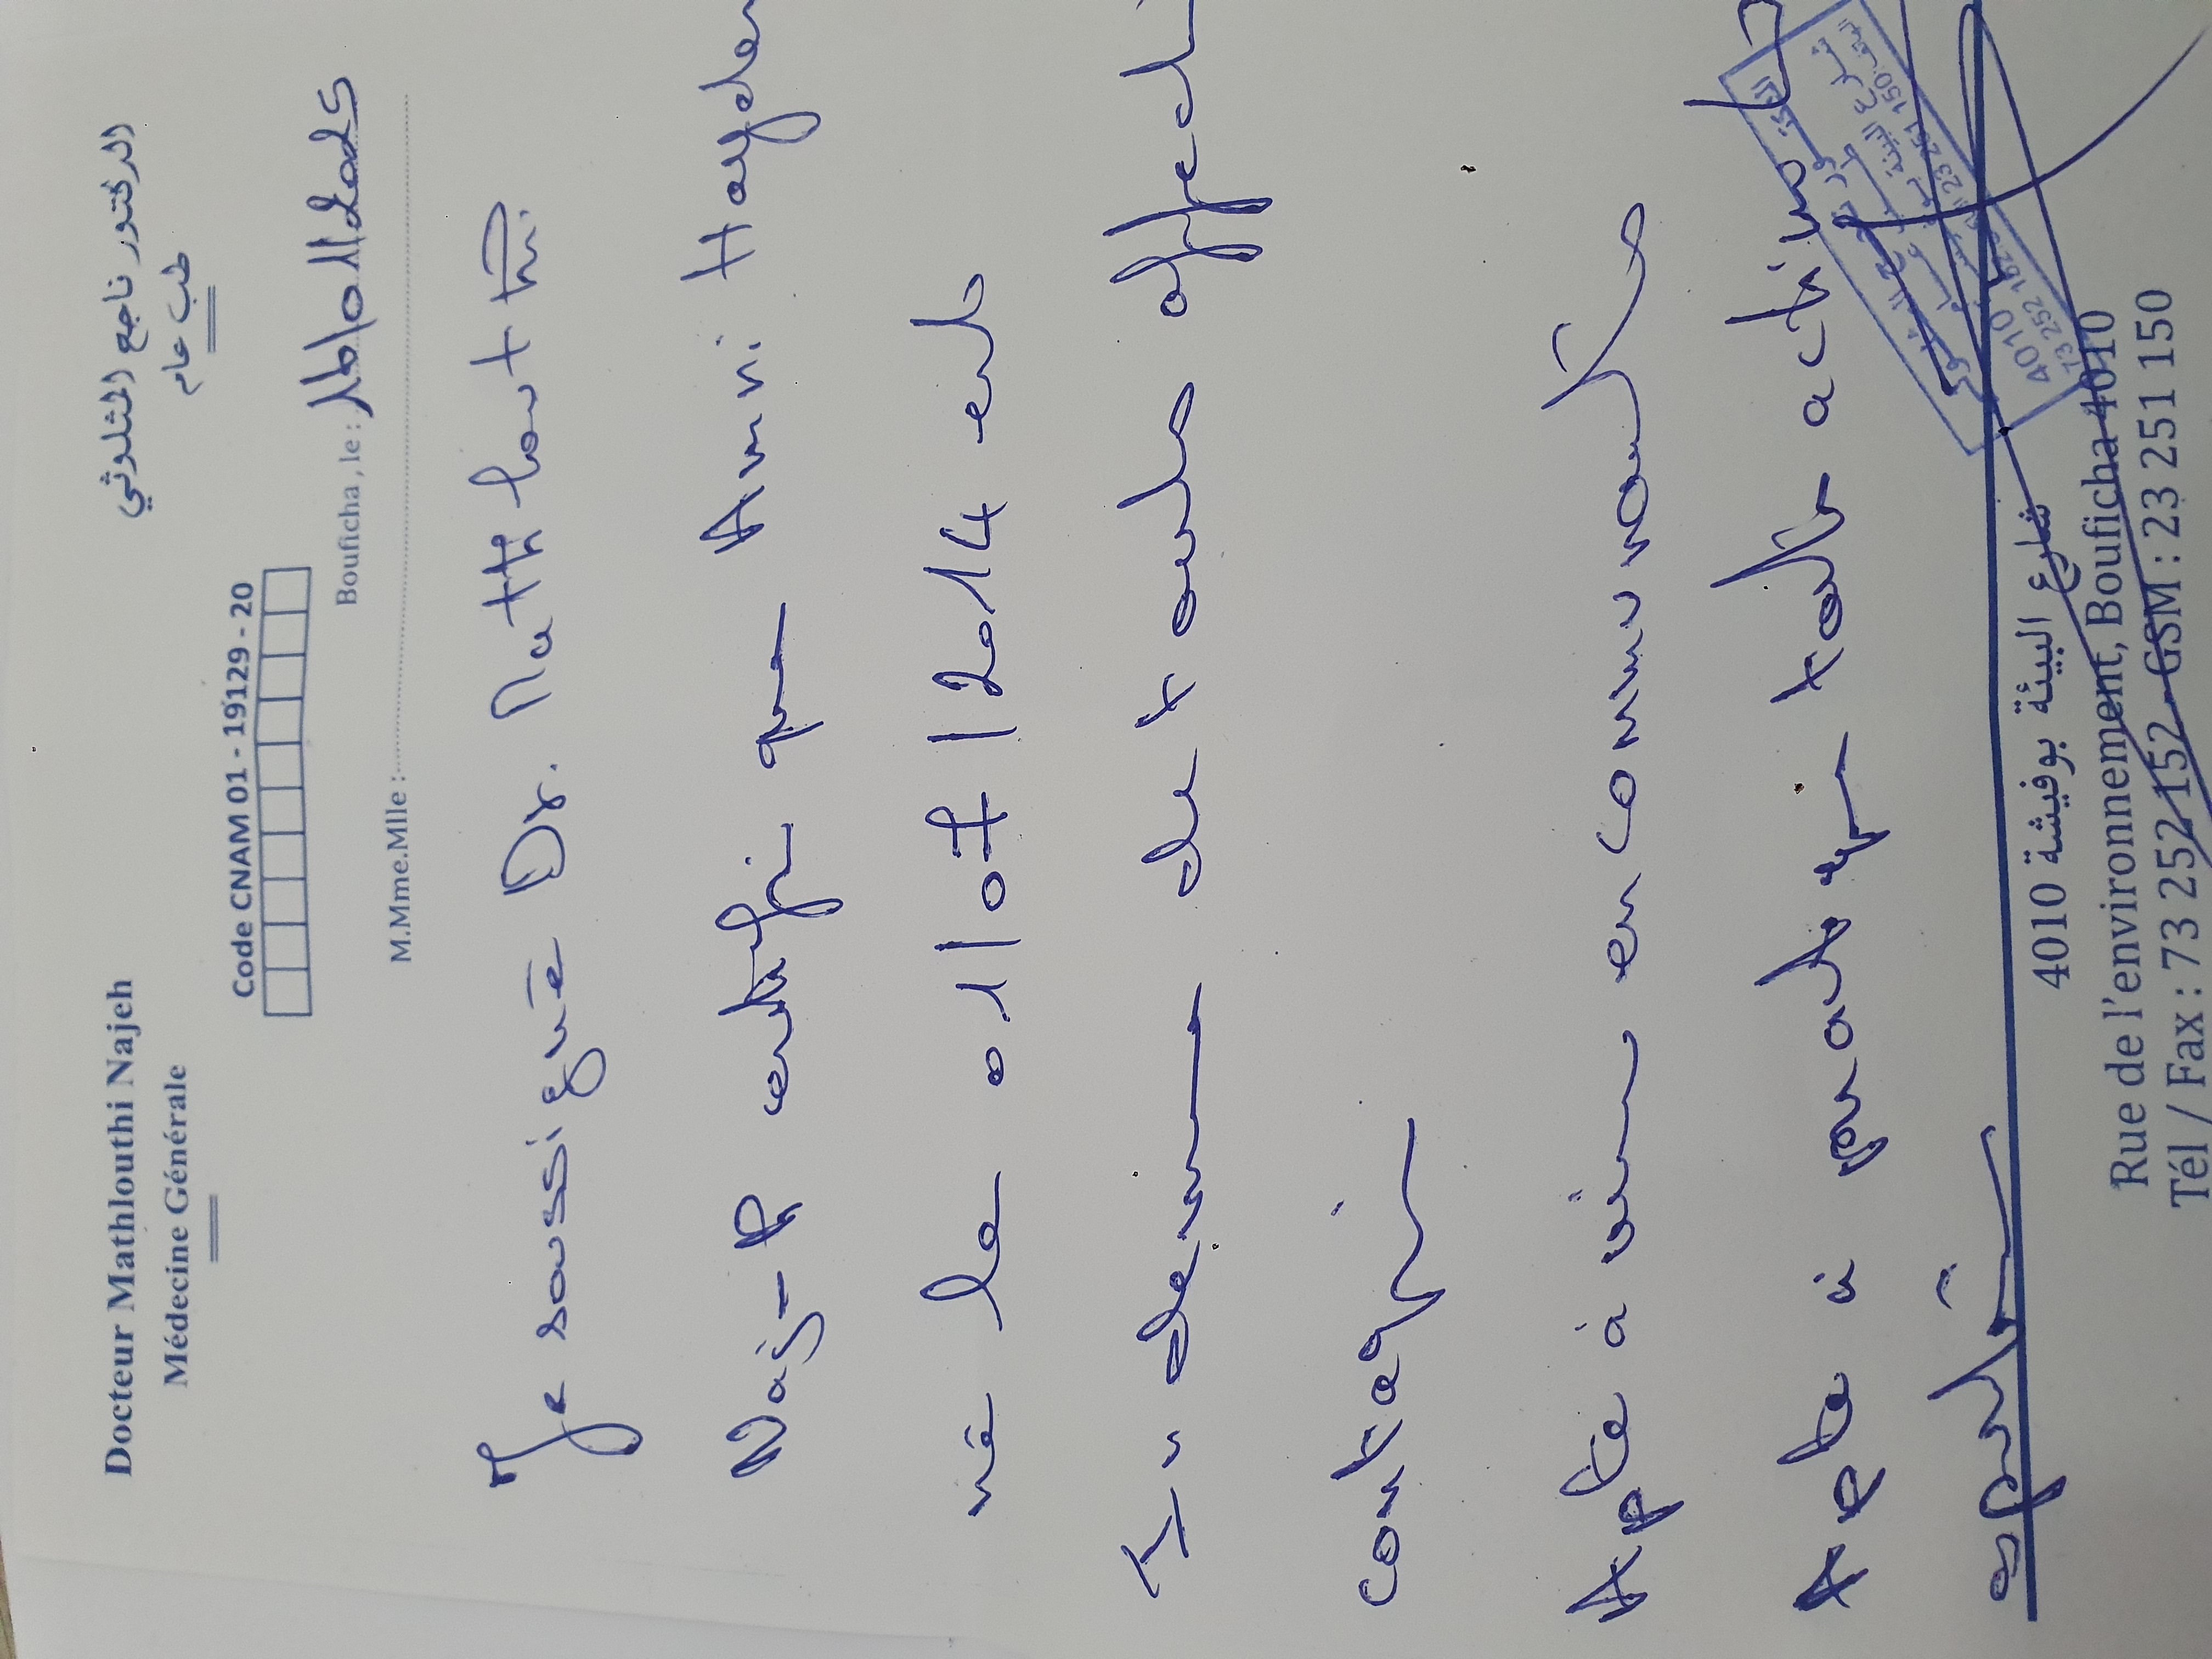 Docteur Mathlouthi Najeh
الدكتور ناجح المثلوثي
Médecine Générale
طب عام
Code CNAM 01 - 19129 - 20
Bouficha, le : 16/01/2025
M.Mme.Mlle :
Je soussigné Dr. Mathlouthi
Najeh certifie que Amri Hayder
né le 01/07/2014 est
indemne de toute affection
contagieuse
Apte à vivre en communauté
Apte à pratiquer toute activité
sportive
شارع البيئة بوفيشة 4010
Rue de l'environnement, Bouficha 4010
Tél / Fax : 73 252 152 - GSM : 23 251 150